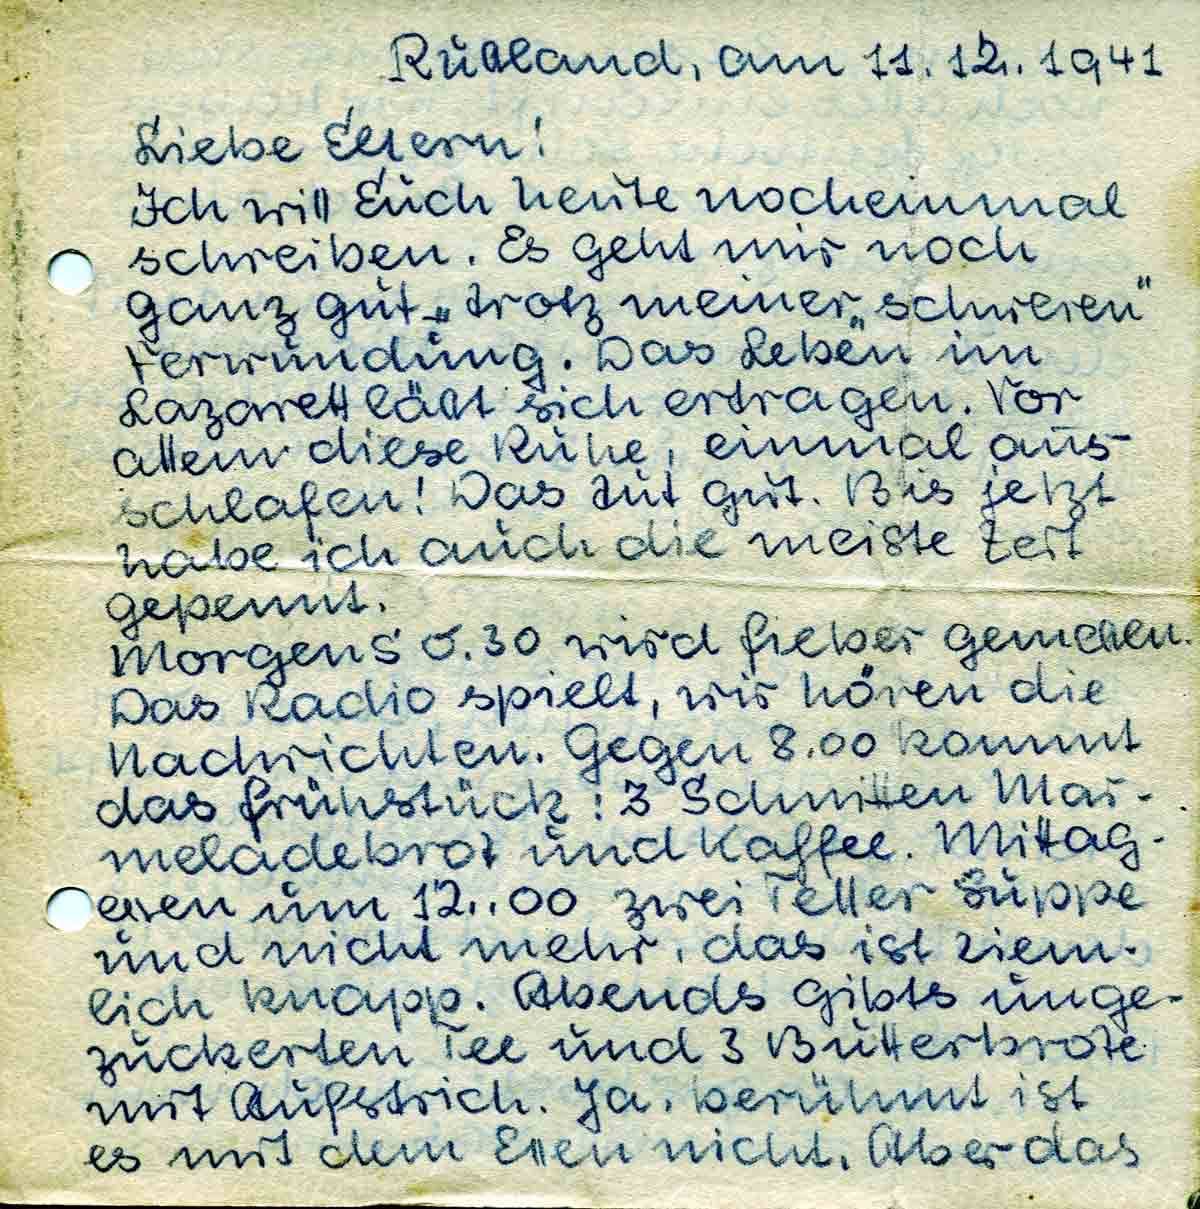 Rußland, am 11.12.1941
Liebe Eltern!
Ich will Euch heute nocheinmal
schreiben. Es geht mir noch
ganz gut - trotz meiner „schweren“
Verwundung. Das Leben im
Lazarett läßt sich ertragen. Vor
allem diese Ruhe, einmal aus-
schlafen! Das tut gut. Bis jetzt
habe ich auch die meiste Zeit
gepennt.
Morgens 5.30 wird Fieber gemessen.
Das Radio spielt, wir hören die
Nachrichten. Gegen 8.00 kommt
das Frühstück: 3 Schnitten Mar-
meladebrot und Kaffee. Mittag-
essen um 12.00 zwei Teller Suppe
und nicht mehr, das ist ziem-
lich knapp. Abends gibts unge-
zuckerten Tee und 3 Butterbrote
mit Aufstrich. Ja, berühmt ist
es mit dem Essen nicht. Aber das